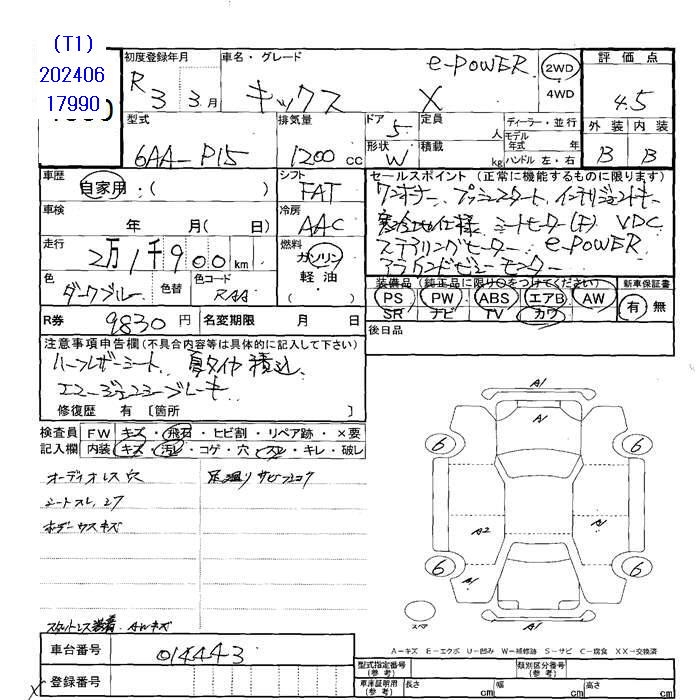 (T1)
202406
17990
初度登録年月
R 3 3月
車名・グレード
e-POWER
キックス X
2WD
4WD
評価点
4.5
外装 内装
B B
型式
6AA-P15
排気量
1200 cc
ドア
5
形状
W
定員
人
積載
kg
ディーラー・並行
モデル
年式 年
ハンドル 左・右
車歴
自家用・( )
シフト
FAT
車検
年 月( 日)
冷房
AAC
走行
2万1千900 km
燃料
ガソリン
軽油
( )
色
ダークブルー
色替
色コード
RAA
セールスポイント (正常に機能するものに限ります)
ワンオーナー プッシュスタート インテリジェントキー
寒冷地仕様 シートヒーター(F) VDC
ステアリングヒーター e-POWER
アラウンドビューモニター
装備品 (純正品に限り○をつけてください)
PS PW ABS エアB AW
SR ナビ TV カワ
新車保証書
有 無
R券 9830 円
名変期限 月 日
後日品
注意事項申告欄(不具合内容等は具体的に記入して下さい)
ハーフレザーシート 夏タイヤ積込
エマージェンシーブレーキ
修復歴 有 〔箇所 〕
検査員 FW キズ・飛石・ヒビ割・リペア跡・×要
記入欄 内装 キズ・汚レ・コゲ・穴・スレ・キレ・破レ
オーディオレス穴
足廻りサビ
シートスレ
ボデーウスキズ
スタットレス装着 AWキズ
A1
A1
6 6
A2
A1
6 6
A1
スペア
A1
A-キズ E-エクボ U-凹み W-補修跡 S-サビ C-腐食 XX-交換済
車台番号 014443
登録番号
型式指定番号
(参考)
類別区分番号
(参考)
車庫証明用
(参考)
長さ cm 幅 cm 高さ cm